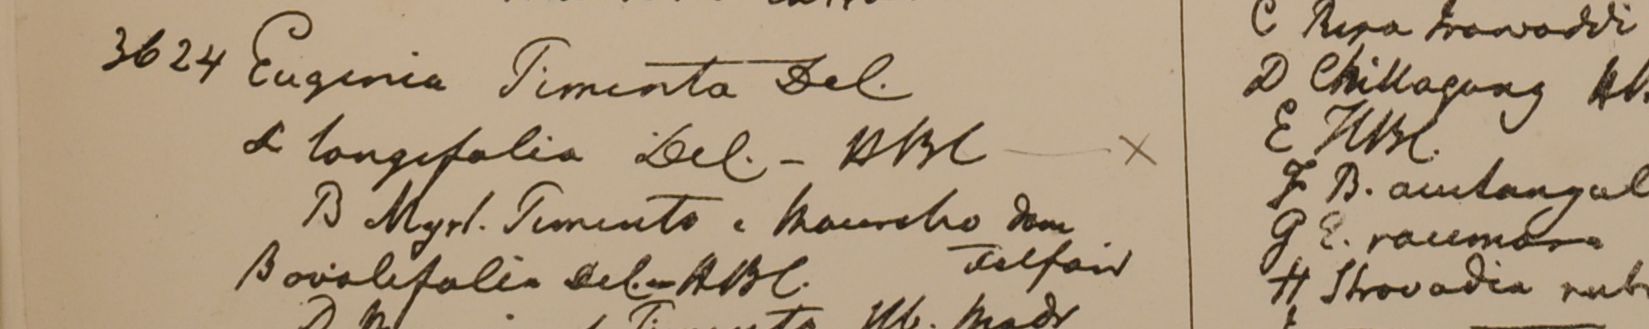 3624 Eugenia Pimenta Del.
α longifolia Del. - HBC ×
B Myrt. Pimenta e Mauritio dom
Telfair
β ovalifolia Del. - HBC.
D Pimenta Hb. Madr
C Ripa Irawaddi
D Chittagong
E HBC.
F B. acutangul
G E. racemosa
H Stravadia rub